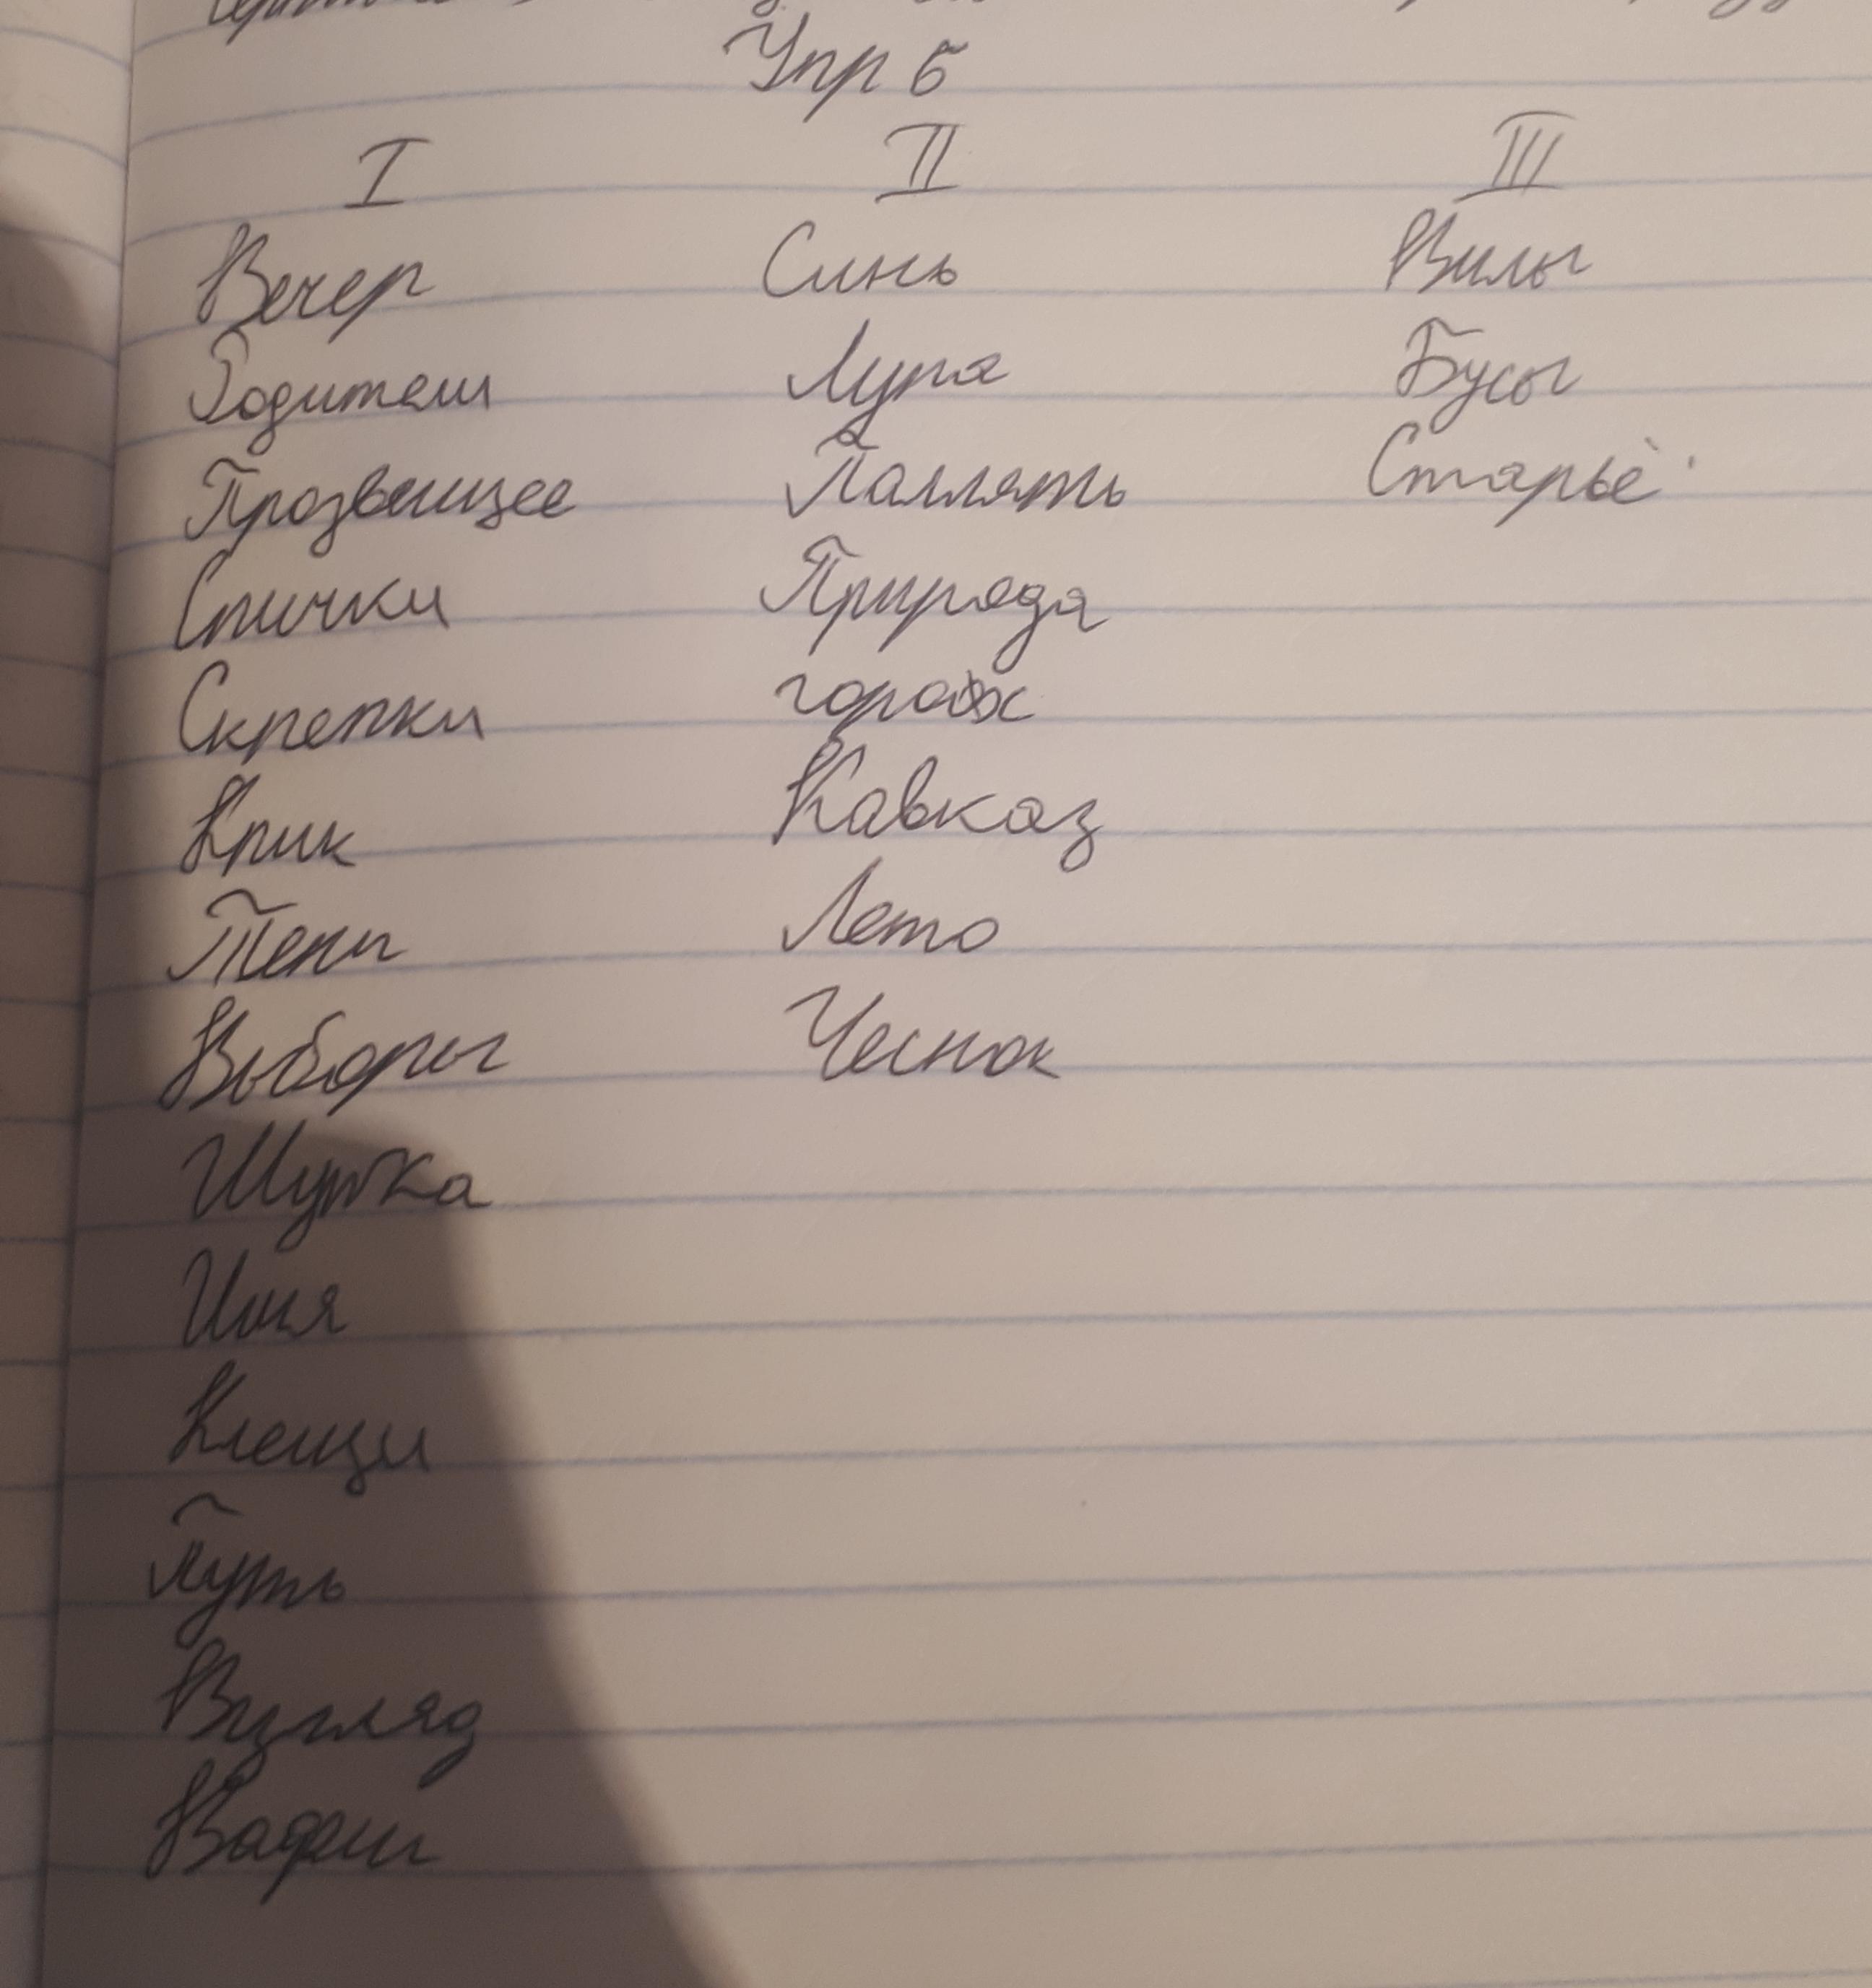 Упр 5
I II III
Вечер Синь Вилы
Родители Лупа Бусы
Прозвеищее Память Старьё
Спички Природа
Скрепки горох
Крик Кавказ
Тени Лето
Выборы Чеснок
Шутка
Имя
Клещи
Путь
Взгляд
Вафли